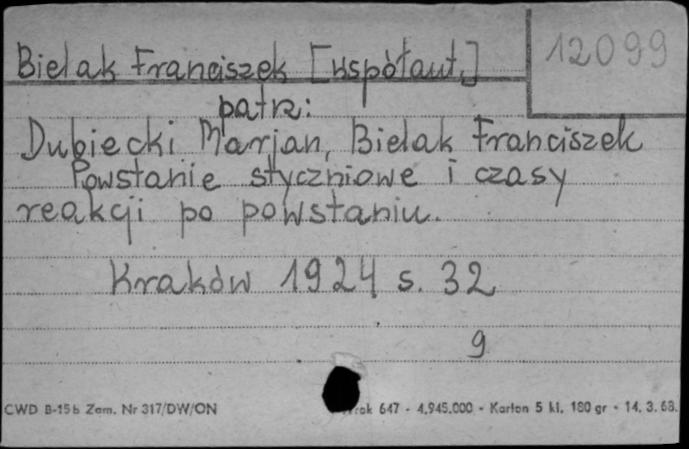 Bielak Franciszek [współaut.]
12099
patrz:
Dubiecki Marjan, Bielak Franciszek
Powstanie styczniowe i czasy
reakcji po powstaniu.
Kraków 1924 s. 32
9
CWD B-15b Zam. Nr 317/DW/ON
647 - 4.945.000 - Karton 5 kl. 180 gr - 14. 3. 68.